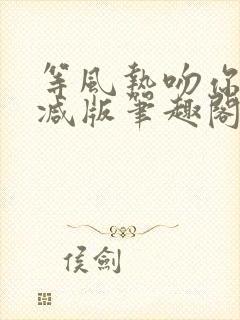 等風熱吻你
減版筆趣閣
侯劍